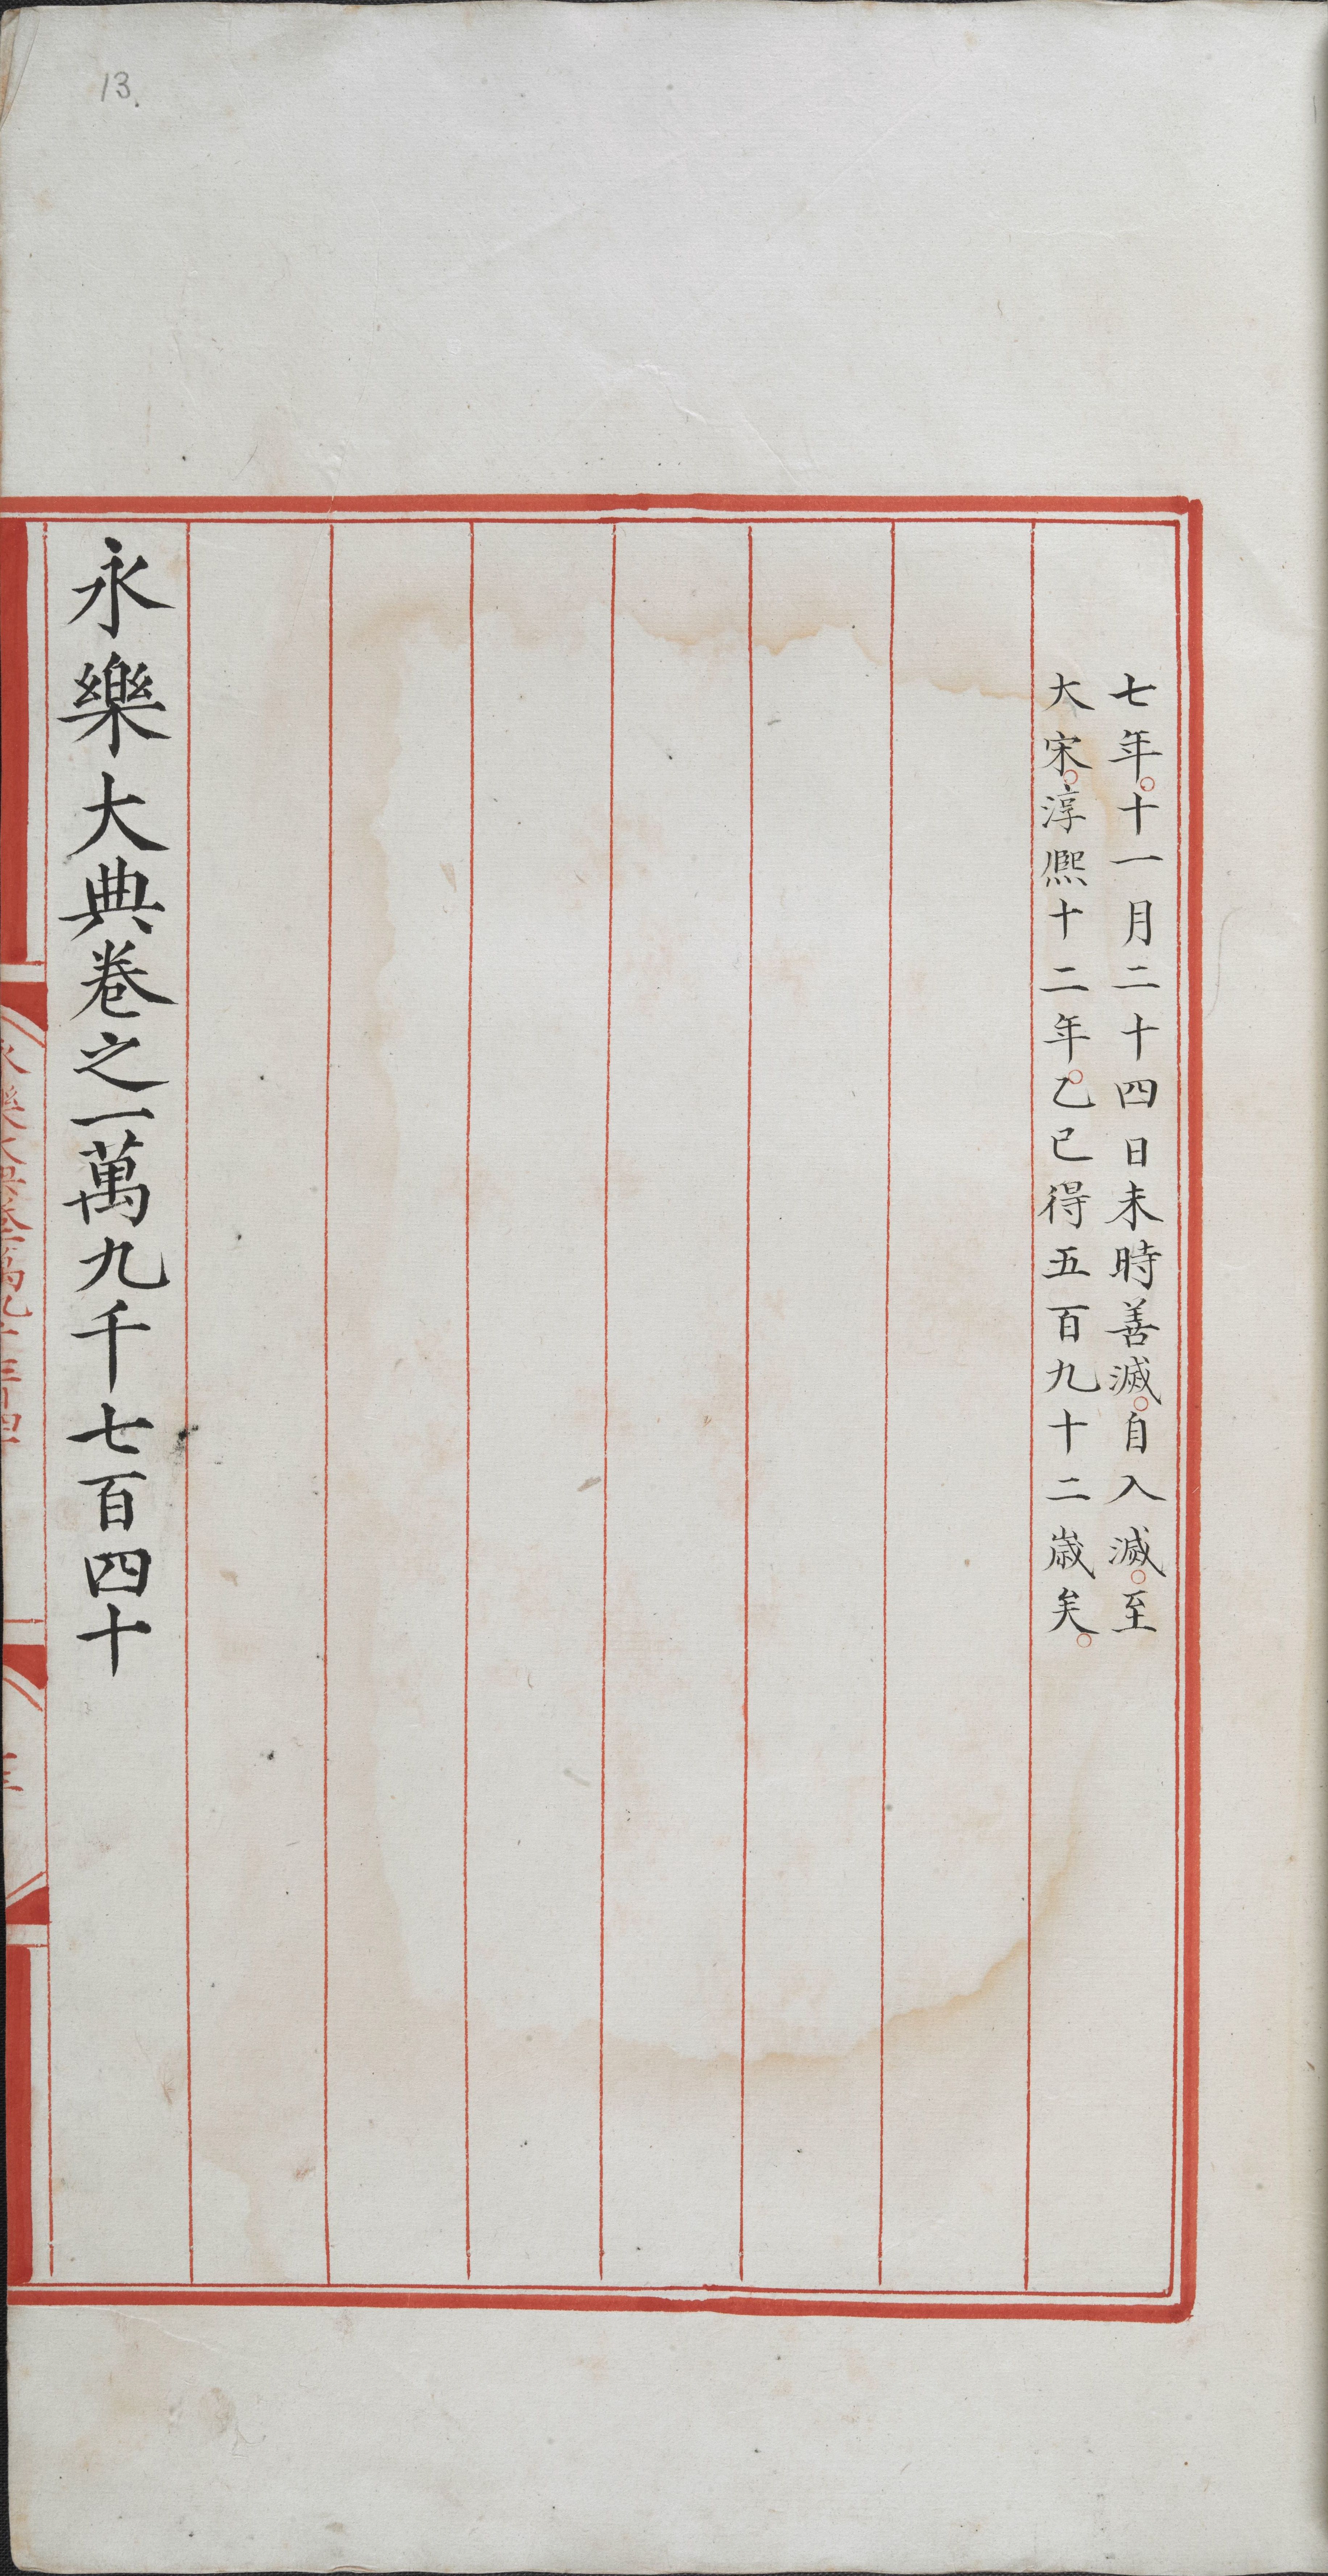 七年。十一月二十四日未時善滅。自入滅。至
大宋。淳熈十二年。乙巳得五百九十二歲矣。
永樂大典卷之一萬九千七百四十
13.